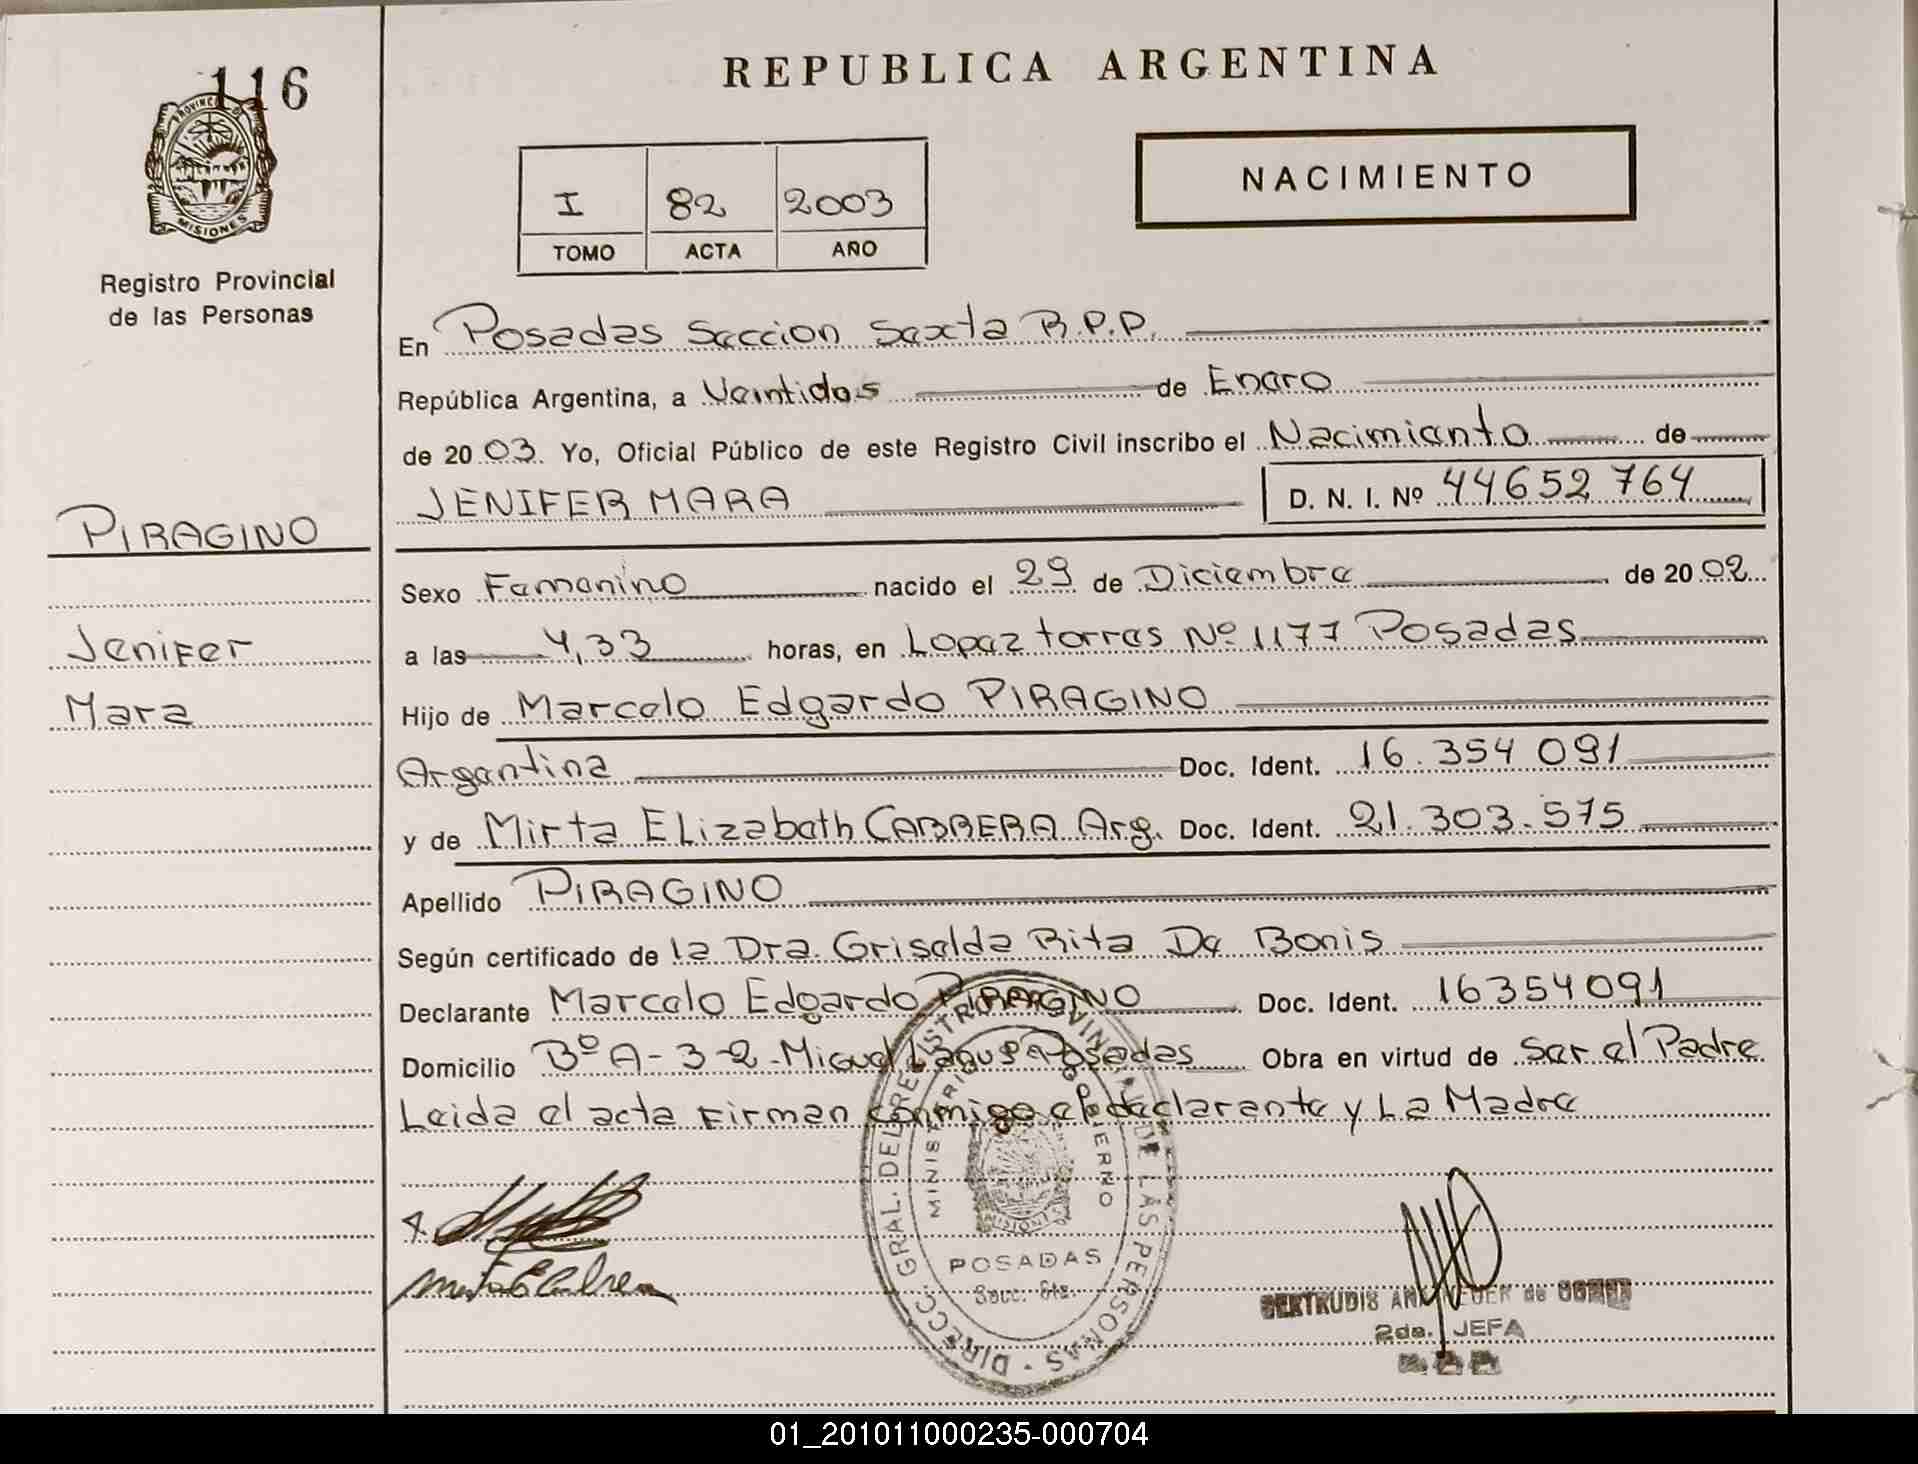 116
REPUBLICA ARGENTINA
PROVINCIA
MISIONES
Registro Provincial
de las Personas
I 82 2003
TOMO ACTA AÑO
NACIMIENTO
En Posadas Seccion Sexta R.P.P.
República Argentina, a Veintidos de Enero
de 2003. Yo, Oficial Público de este Registro Civil inscribo el Nacimiento de
JENIFER MARA D. N. I. Nº 44652764
PIRAGINO
Jenifer
Mara
Sexo Femenino nacido el 29 de Diciembre de 2002
a las 4,33 horas, en Lopez torres Nº 1177 Posadas
Hijo de Marcelo Edgardo PIRAGINO
Argentina Doc. Ident. 16.354 091
y de Mirta ELizabeth CABRERA Arg. Doc. Ident. 21.303.575
Apellido PIRAGINO
Según certificado de la Dra. Griselda Rita De Bonis
Declarante Marcelo Edgardo PIRAGINO Doc. Ident. 16354091
Domicilio Bº A-3-2-Miguel Posadas Obra en virtud de Ser el Padre
Leida el acta Firman conmigo el declarante y La Madre
DIRECC. GRAL. DEL REGISTRO PROVINCIAL DE LAS PERSONAS
MINISTERIO DE GOBIERNO
MISIONES
POSADAS
Secc. 6ta.
GERTRUDIS de
2da. JEFA
01_201011000235-000704